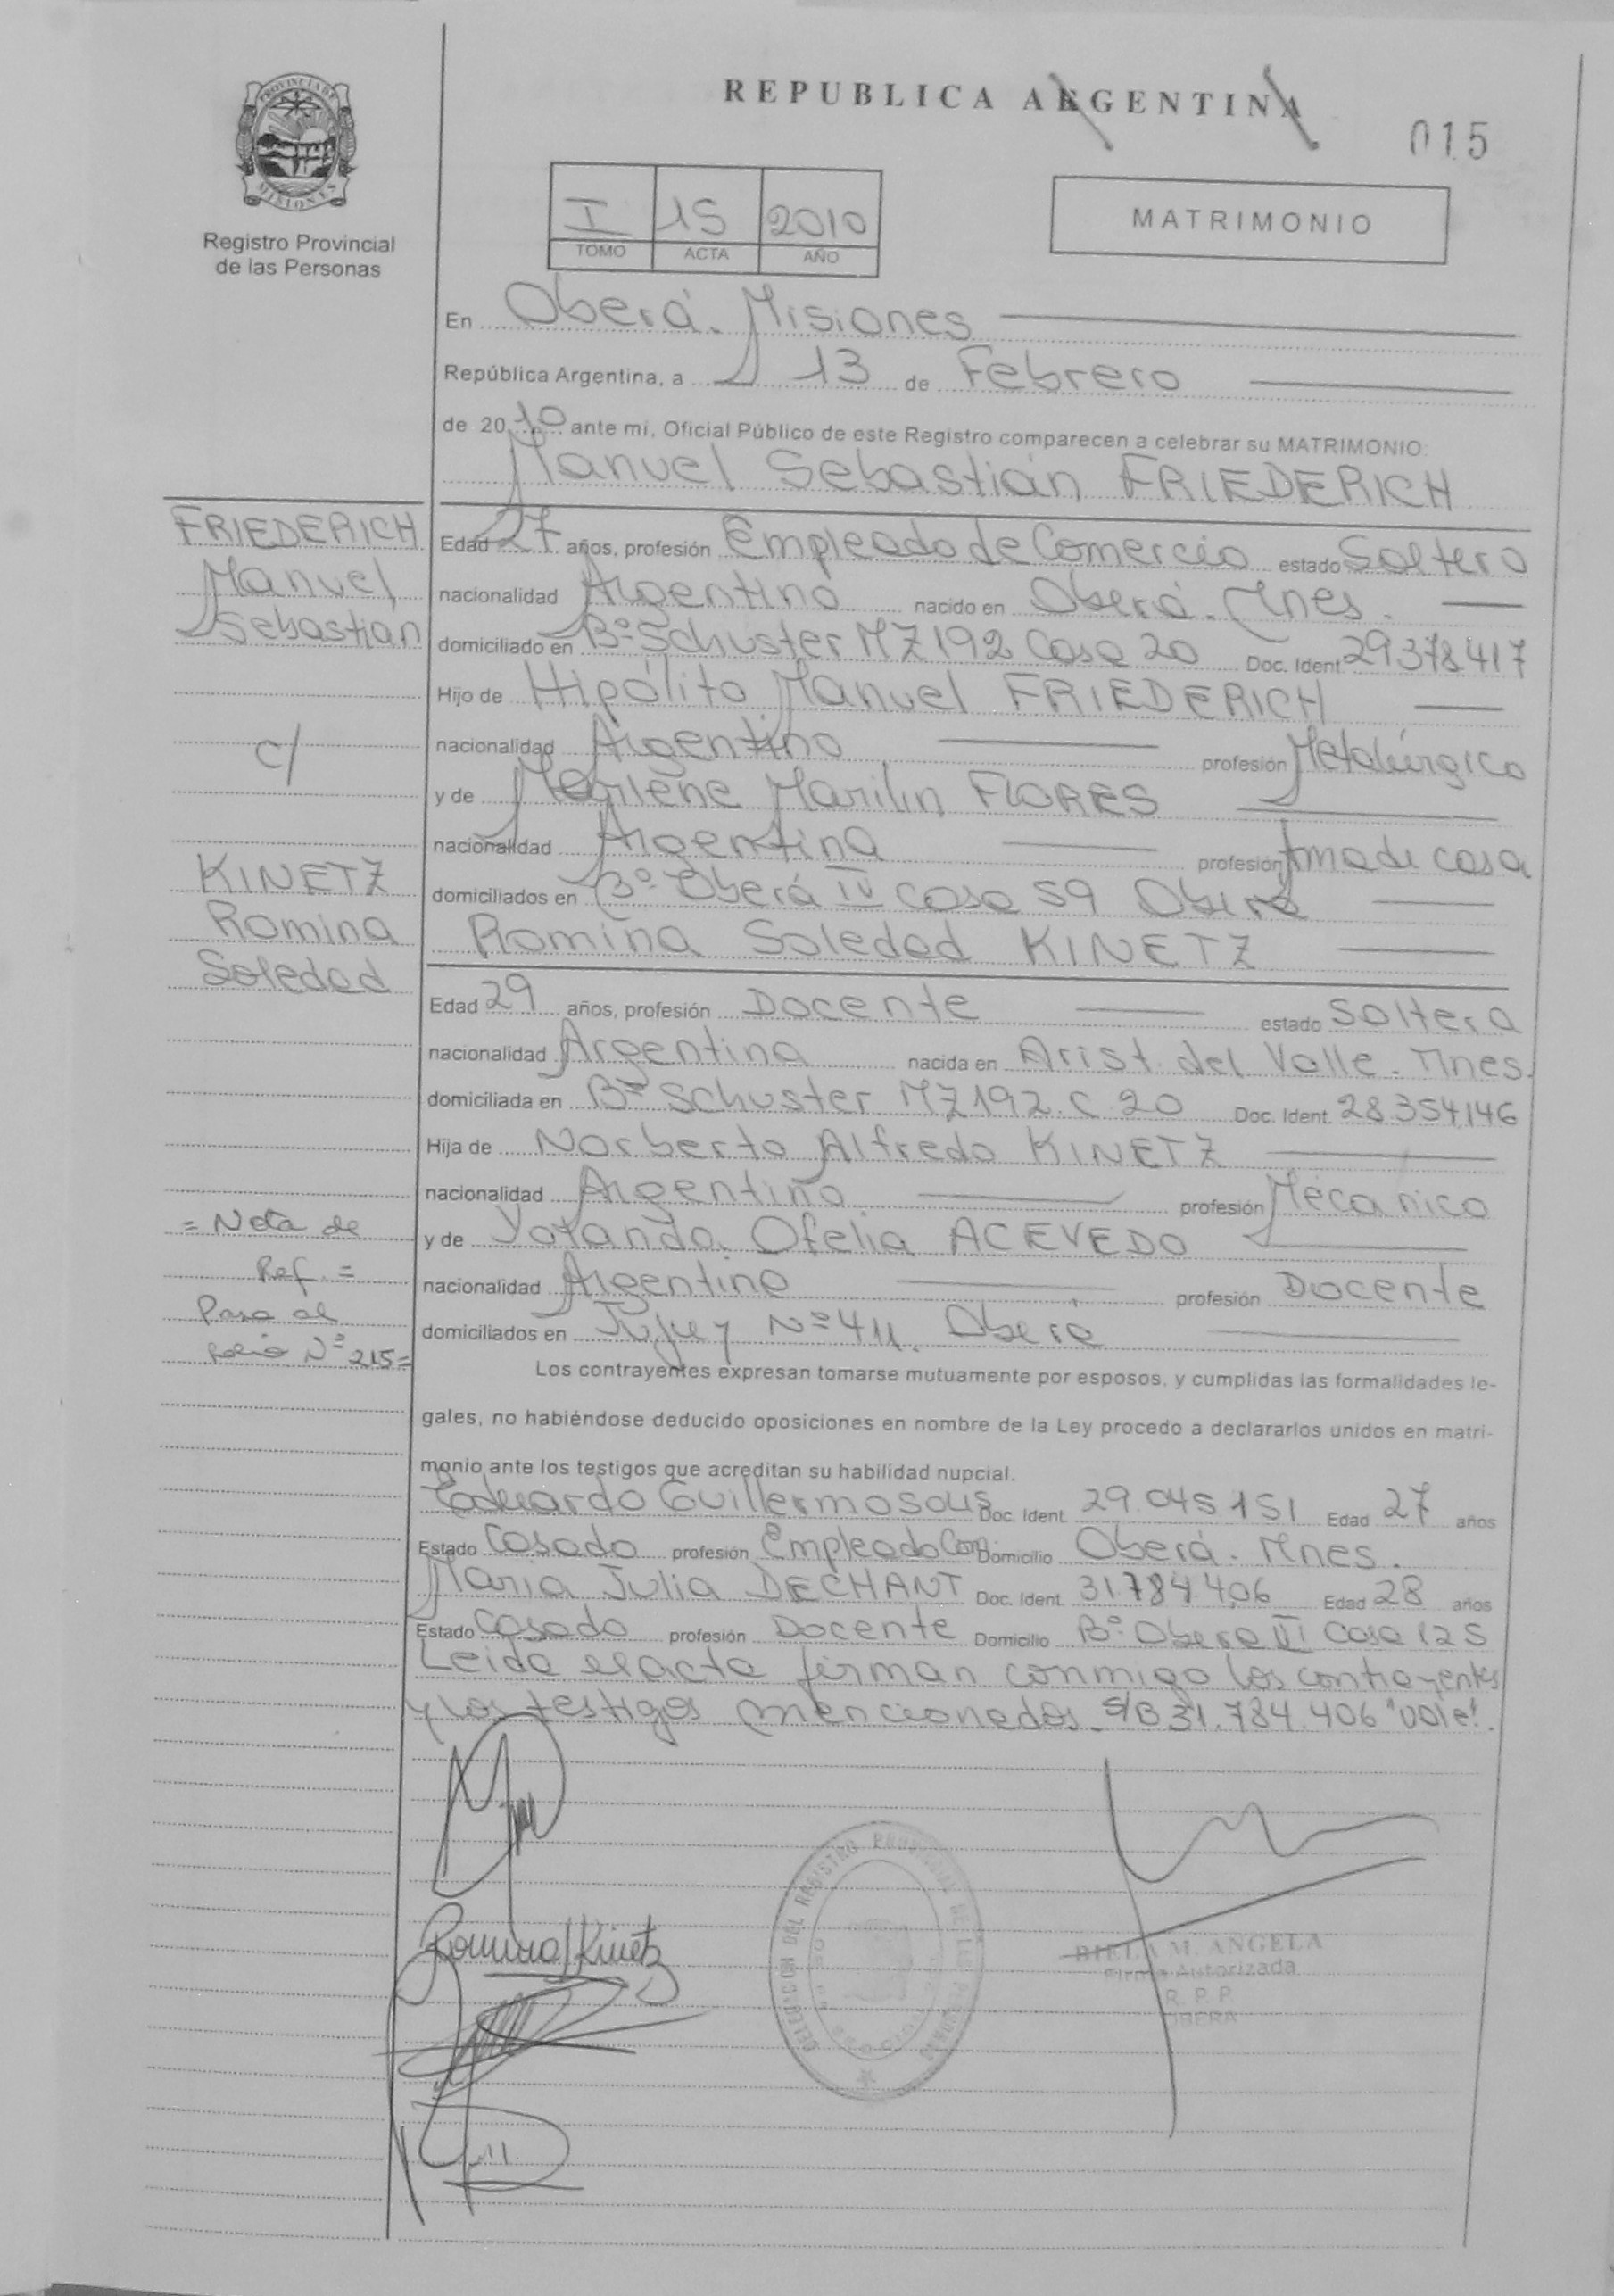 REPUBLICA ARGENTINA
015
PROVINCIA DE
MISIONES
Registro Provincial
de las Personas
I 15 2010
TOMO ACTA AÑO
MATRIMONIO
En Oberá. Misiones
República Argentina, a 13 de Febrero
de 2010 ante mi, Oficial Público de este Registro comparecen a celebrar su MATRIMONIO:
Manuel Sebastián FRIEDERICH
FRIEDERICH
Manuel
Sebastian
c/
KINETZ
Romina
Soledad
Edad 27 años, profesión Empleado de Comercio estado Soltero
nacionalidad Argentino nacido en Oberá. Mnes.
domiciliado en Bº Schuster MZ 192 Casa 20 Doc. Ident 29378417
Hijo de Hipólito Manuel FRIEDERICH
nacionalidad Argentino profesión Metalúrgico
y de Marlene Marilin FLORES
nacionalidad Argentina profesión Ama de casa
domiciliados en Bº Oberá IV Casa 59 Oberá
Romina Soledad KINETZ
Edad 29 años, profesión Docente estado Soltera
nacionalidad Argentina nacida en Arist. del Valle. Mnes.
domiciliada en Bº Schuster MZ 192. C 20 Doc. Ident. 28354146
Hija de Norberto Alfredo KINETZ
nacionalidad Argentino profesión Mecánico
y de Yolanda Ofelia ACEVEDO
nacionalidad Argentina profesión Docente
domiciliados en Jujuy Nº 411. Oberá
= Nota de
Ref. =
Pasa al
folio Nº 215 =
Los contrayentes expresan tomarse mutuamente por esposos, y cumplidas las formalidades le-
gales, no habiéndose deducido oposiciones en nombre de la Ley procedo a declararlos unidos en matri-
monio ante los testigos que acreditan su habilidad nupcial.
Eduardo Guillermo SOLIS Doc. Ident. 29.045151 Edad 27 años
Estado Casado profesión Empleado Com. Domicilio Oberá. Mnes.
Maria Julia DECHANT Doc. Ident. 31.784.406 Edad 28 años
Estado Casada profesión Docente Domicilio Bº Oberá VI Casa 125
Leida el acta firman conmigo los contrayentes
y los testigos mencionados. S/B 31.784.406 "Vale".
Romina S Kinetz
DELEGACION DEL REGISTRO PROVINCIAL DE LAS PERSONAS
BIELA M. ANGELA
Firma Autorizada
R. P. P.
OBERA